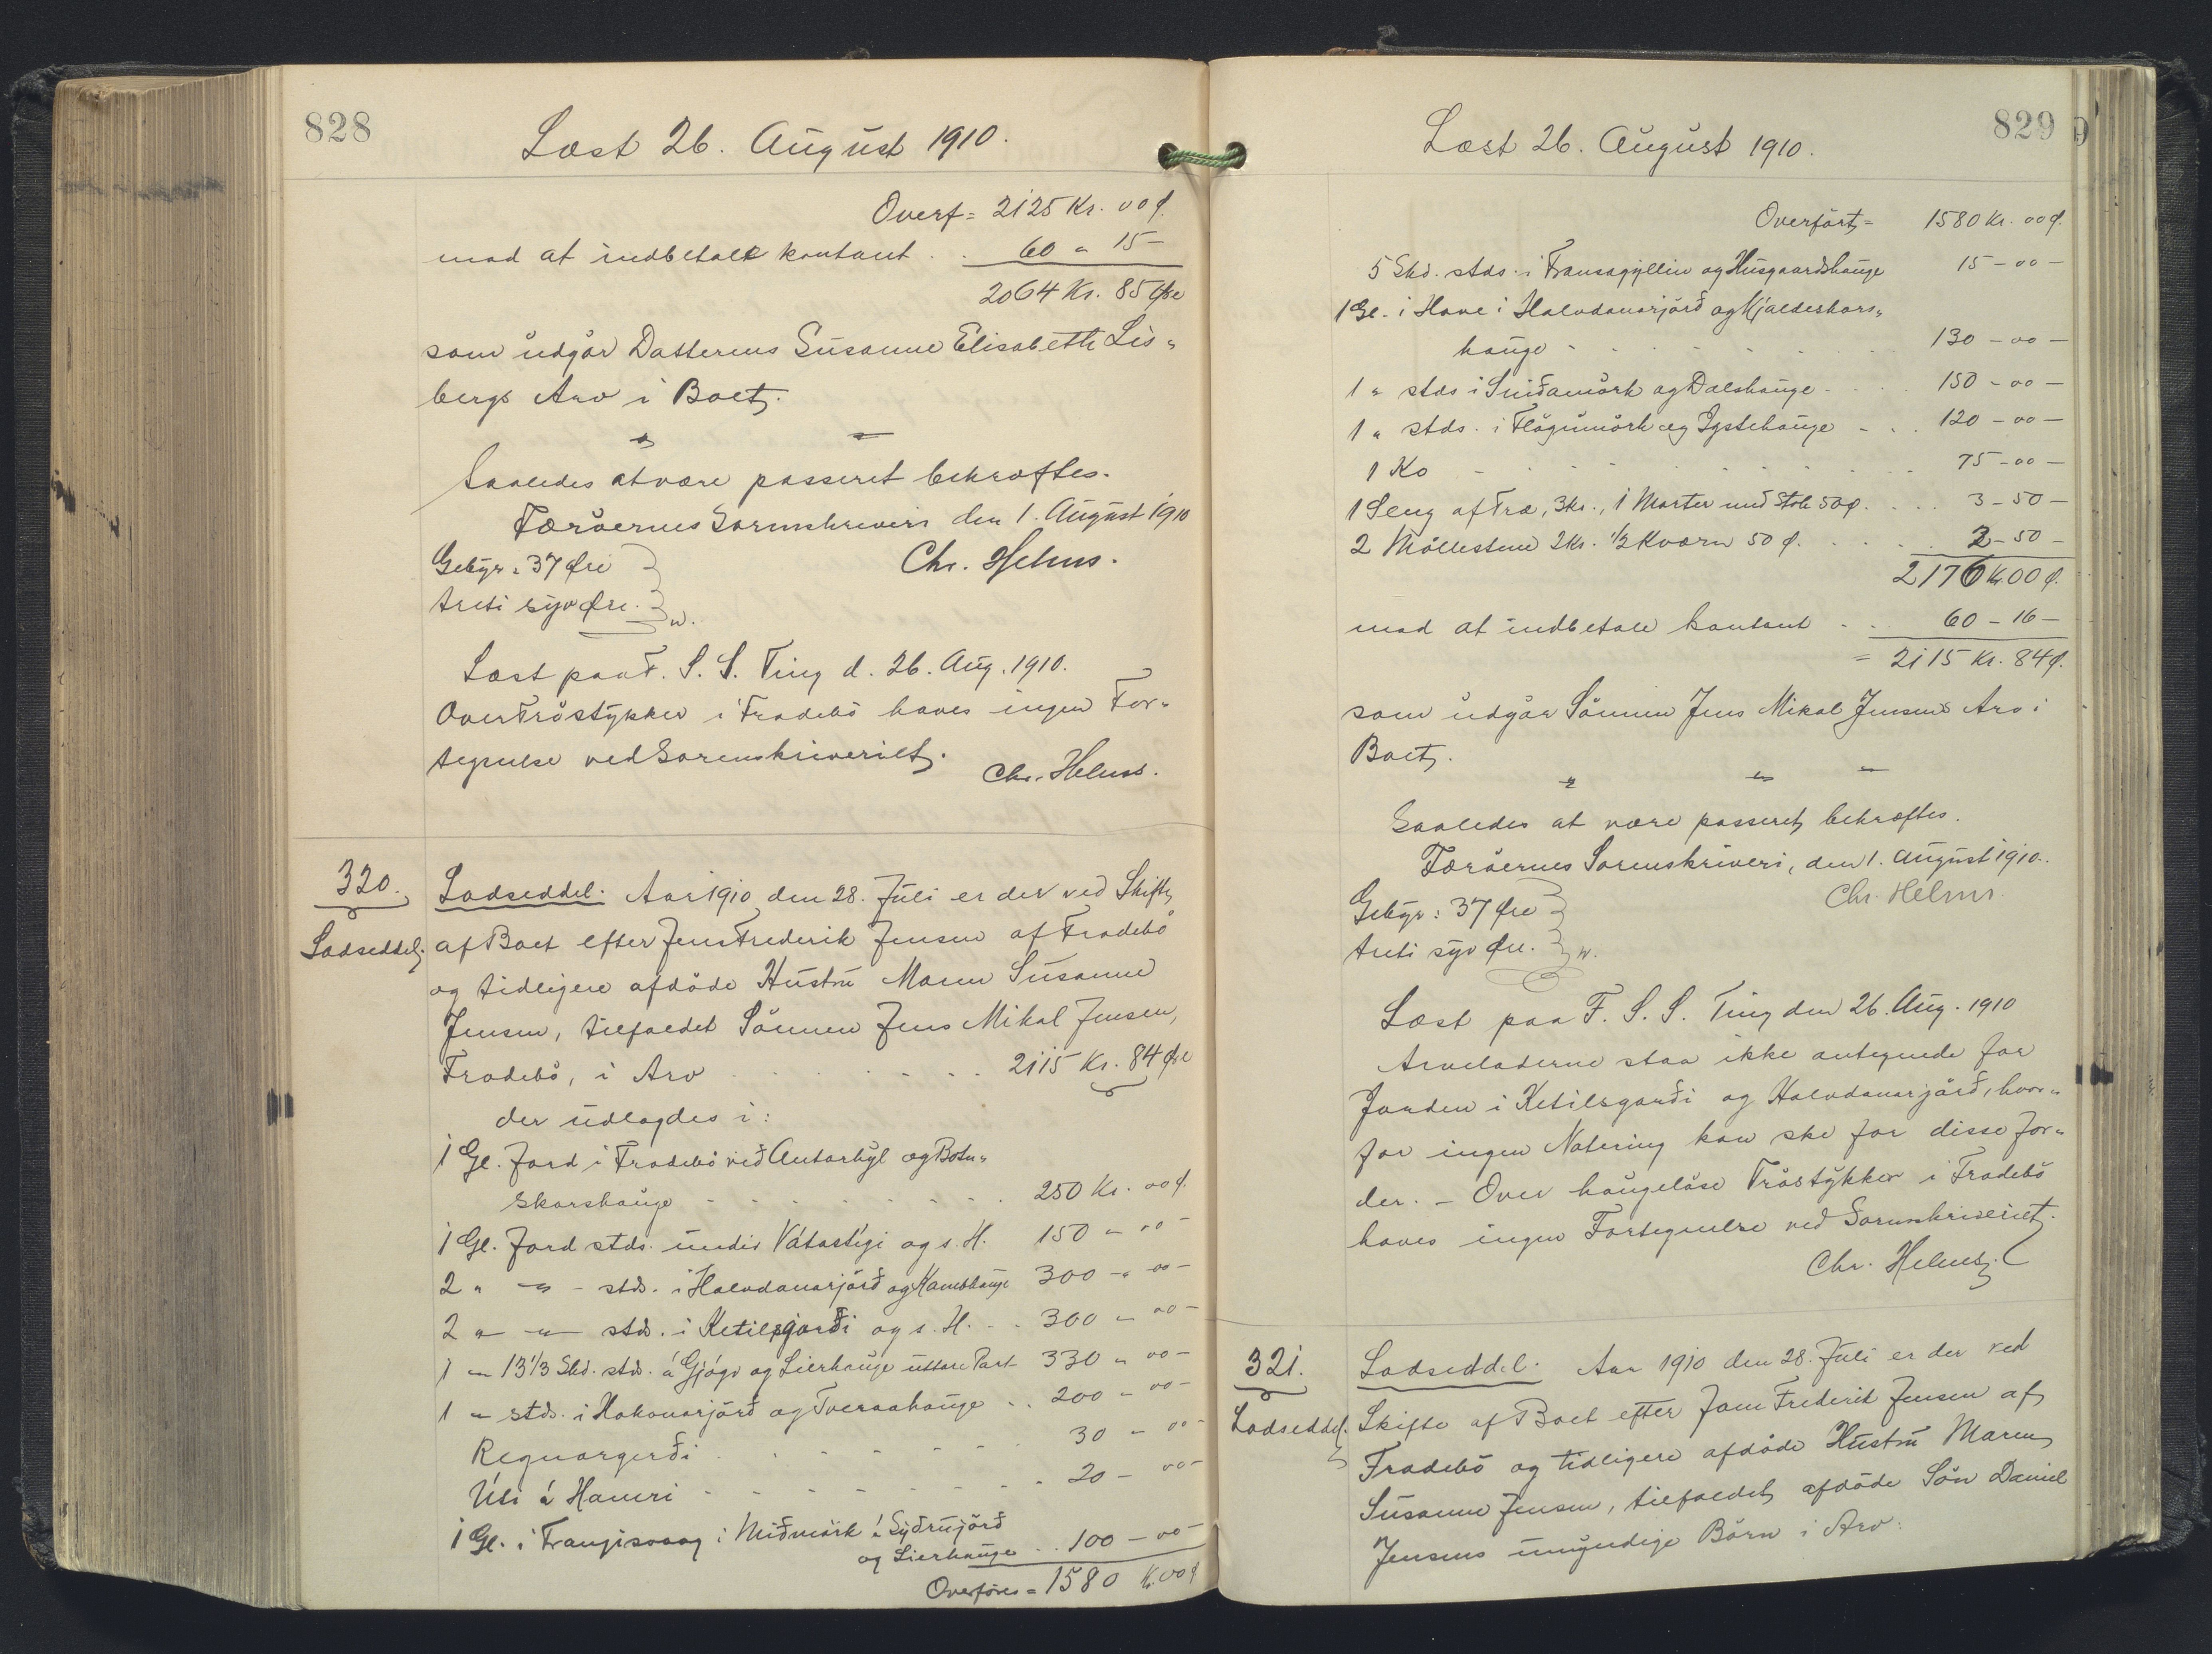 828
Læst 26. August 1910.
Overf= 2125 Kr. 00 ø.
mod at indbetale kontant . . 60 " 15 -
2064 Kr. 85 Øre
som udgør Datterens Susanne Elisabeth Lis=
bergs Arv i Boet.
" =
Saaledes at være passeret bekræftes.
Færøernes Sorenskriveri den 1. August 1910
Gebyr = 37 Øre
Chr. Helms.
treti syv Øre.
w.
Læst paa F. S. S. Ting d. 26. Aug. 1910.
Over Trøstykker i Frodebø haves ingen For=
tegnelse ved Sorenskriveriet.
Chr. Helms.
320.
Lodseddel. Aar 1910 den 28. Juli er der ved Skifte
Lodseddel.
af Boet efter Jens Frederik Jensen af Frodebø
og tidligere afdøde Hustru Maren Susanne
Jensen, tilfaldet Sønnen Jens Mikal Jensen,
Frodebø, i Arv . . . . . . 2115 Kr. 84 Øre
der udlagdes i:
1 Gl. Jord i Frodebø við Antarhyl og Botn=
skorshauge . . . . . . . . 250 Kr. 00 ø.
1 Gl. Jord stds. undir Vátastígi og s. H. 150 " 00 -
2 " " - stds. i Halvdanarjörð og Kambhauge 300 - " 00 -
2 " " stds. i Ketilsgarði og s. H. . . 300 " 00 -
1 " 13 1/3 Skd. stds. á Gjógv og Lierhauge uttare Part 330 " 00 -
1 " stds. i Hakonarjörð og Tveraahauge . . 200 " 00 -
Regnargerði . . . . . . 30 - 00 -
Úti á Hamri - - - - - - - . 20 - 00 -
1 Gl. i Frangisvaag i Miðmörk á Syðrujörð
og Lierhauge . . 100 - 00 -
Overføres = 1580 Kr. 00 ø
829
Læst 26. August 1910.
Overført = 1580 Kr. 00 ø.
5 Skd. stds. i Fransagyllin og Husgaardshauge 15 - 00 -
1 Gl. i Hove i Halvdanarjörð og Kjaldeskors=
hauge - . . . . . . . 130 - 00 -
1 " stds i Sniðamörk og Dalshauge - . . . 150 - 00 -
1 " stds. i Flögumörk og Systehauge - . . 120 - 00 -
1 Ko - . . . . . . . . . . 75 - 00 -
1 Seng af Træ, 3 Kr., 1 Morter med Støb 50 ø. . . . 3 - 50 -
2 Møllestene 2 Kr. 1/2 Kværn 50 ø. . . . . 2 - 50 -
2176 Kr 00 ø.
mod at indbetale kontant . . 60 - 16 -
= 2115 Kr. 84 ø.
som udgør Sønnen Jens Mikal Jensens Arv i
Boet.
" " =
Saaledes at være passeret bekræftes.
Færøernes Sorenskriveri, den 1. August 1910.
Chr. Helms.
Gebyr: 37 Øre
treti syv Øre.
w.
Læst paa F. S. S. Ting den 26. Aug. 1910
Arveladerne staa ikke antegnede for
Jorden i Ketilsgarði og Halvdanarjörð, hvor=
for ingen Notering kan ske for disse Jor=
der. - Over haugeløse Trøstykker i Frodebø
haves ingen Fortegnelse ved Sorenskriveriet.
Chr. Helms.
321.
Lodseddel. Aar 1910 den 28. Juli er der ved
Lodseddel.
Skifte af Boet efter Jens Frederik Jensen af
Frodebø og tidligere afdøde Hustru Maren
Susanne Jensen, tilfaldet afdøde Søn Daniel
Jensens umyndige Børn i Arv: